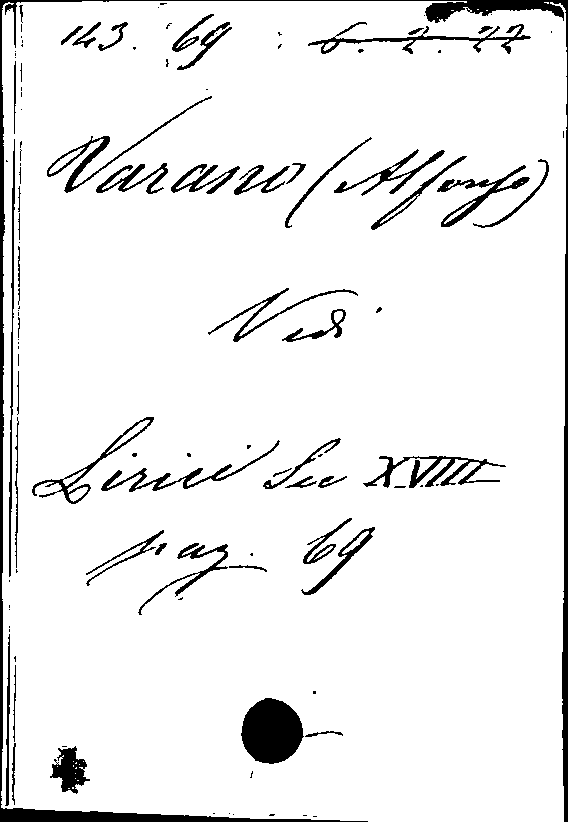 143. 69 : 6. 2. 22
Varano (Alfonso)
Vedi
Lirici Sec XVIII
pag. 69